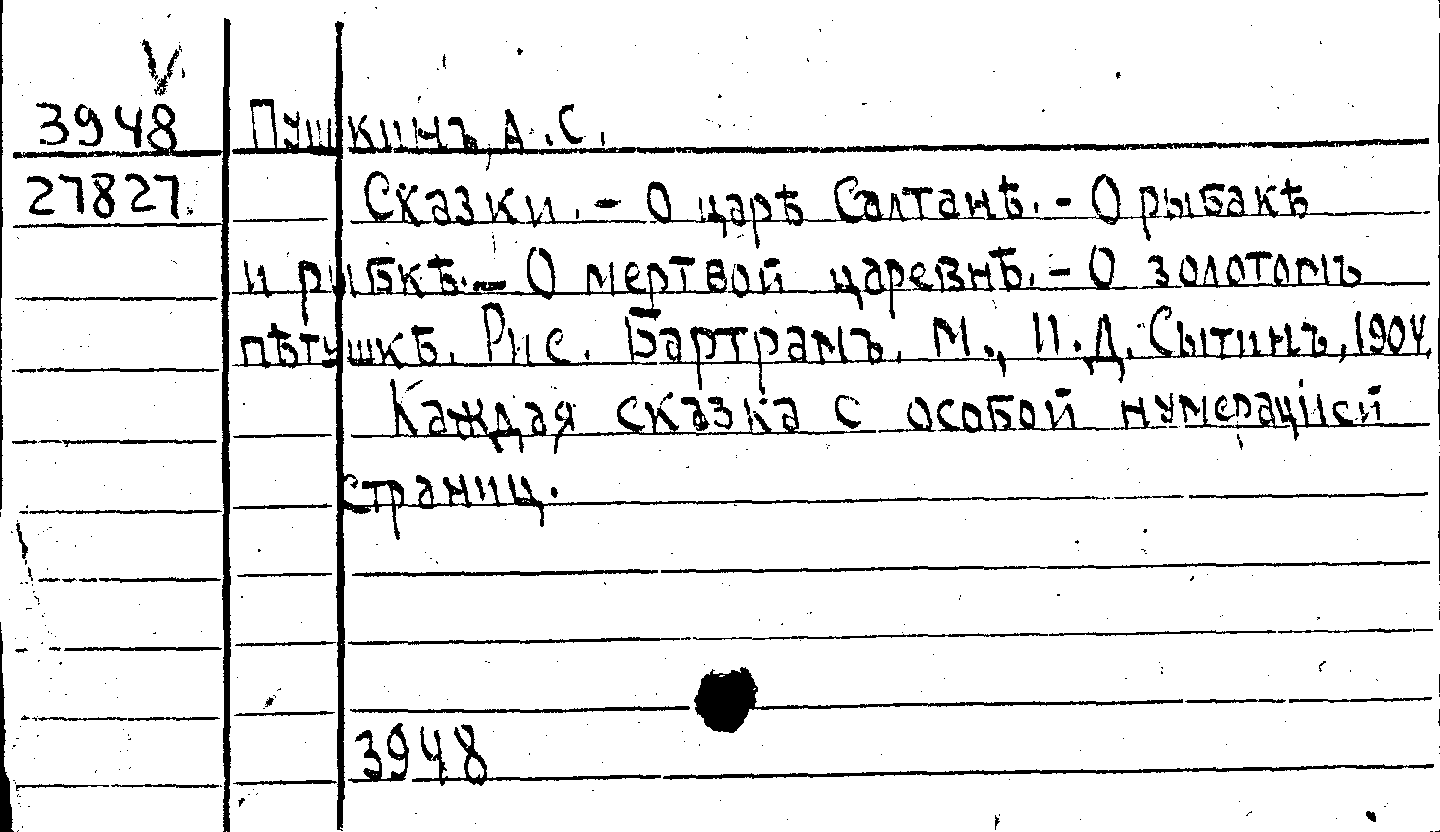 V
3948 Пушкинъ, А.С.
27827. Сказки. - О царѣ Салтанѣ. - О рыбакѣ
и рыбкѣ. - О мертвой царевнѣ. - О золотомъ
пѣтушкѣ. Рис. Бартрамъ. М., И.Д. Сытинъ, 1904.
Каждая сказка с особой нумерацiей
страниц.
3948